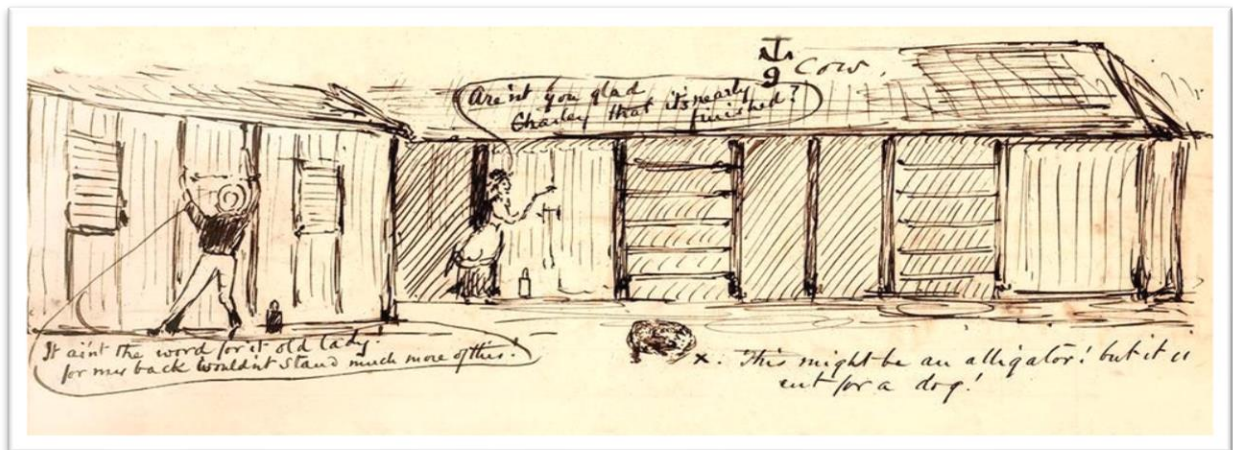 9 Cow,
Are'nt you glad
Charley that its nearly
finished?
It ai'nt the word for it old lady!
for my back wouldn't stand much more of this!
x. This might be an alligator! but it is
for a dog!